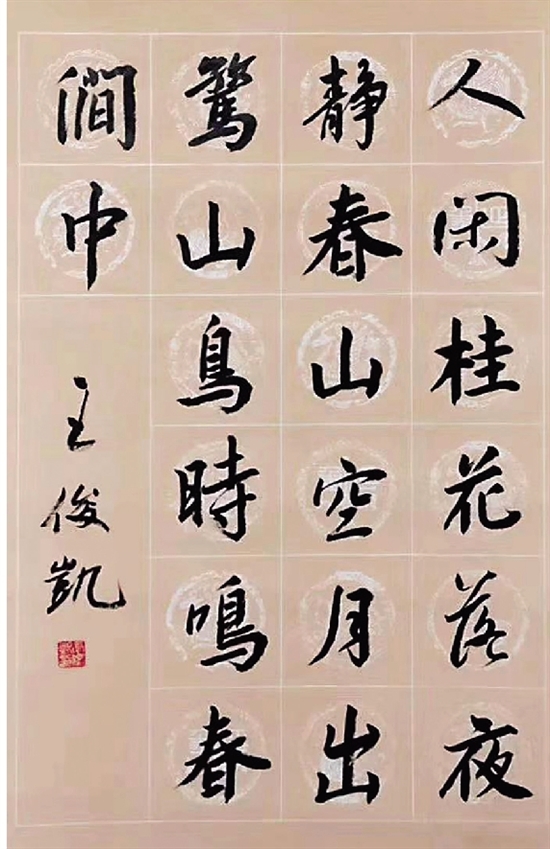 人闲桂花落夜
静春山空月出
驚山鳥時鳴春
澗中
王俊凱